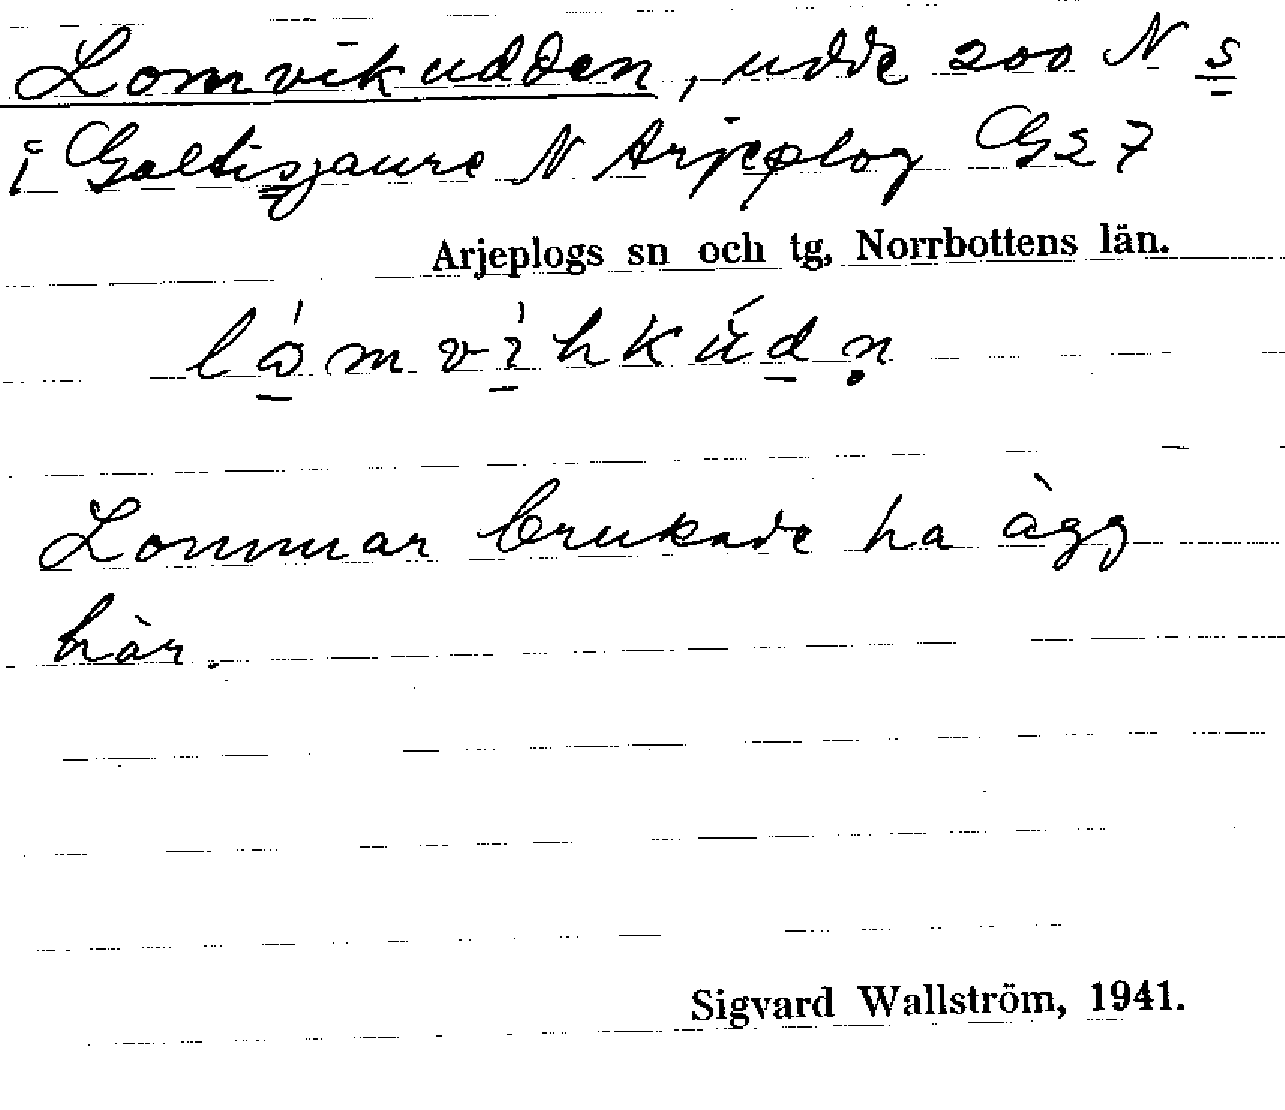 Lomvikudden, udde 200 N s
i Galtisjaure N Arjeplog G27
Arjeplogs sn och tg, Norrbottens län.
lómvíhkúdṇ
Lommar brukade ha ägg
här.
Sigvard Wallström, 1941.